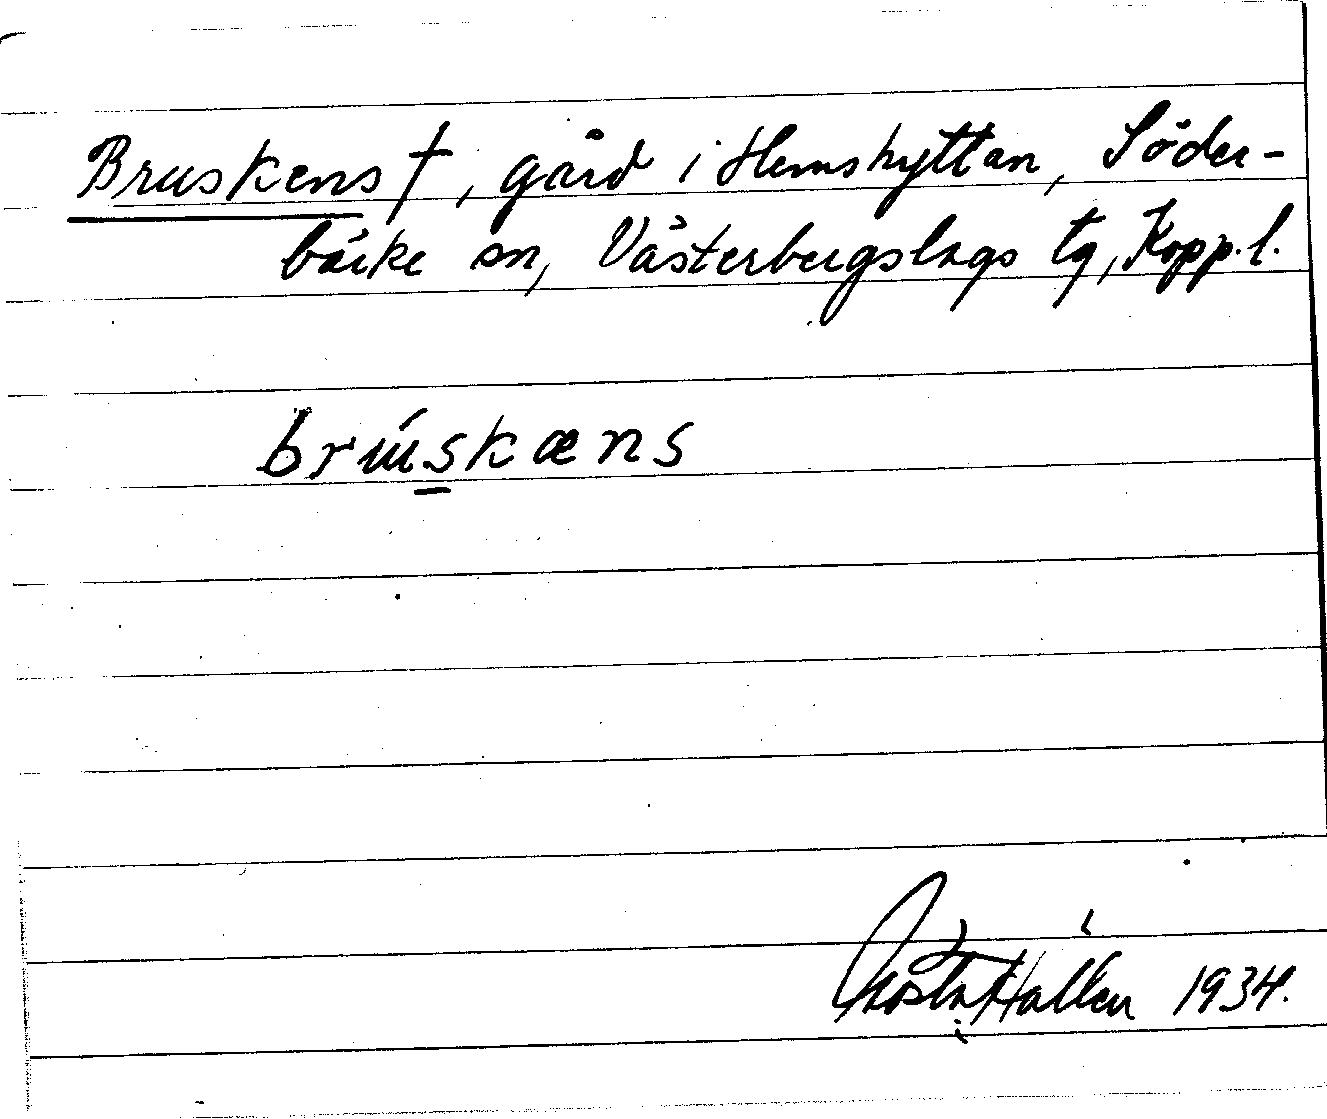 Bruskens †, gård i Hemshyttan, Söder-
bärke sn, Västerbergslags tg, Kopp.l.
brúskæns
Gösta Hallén 1934.